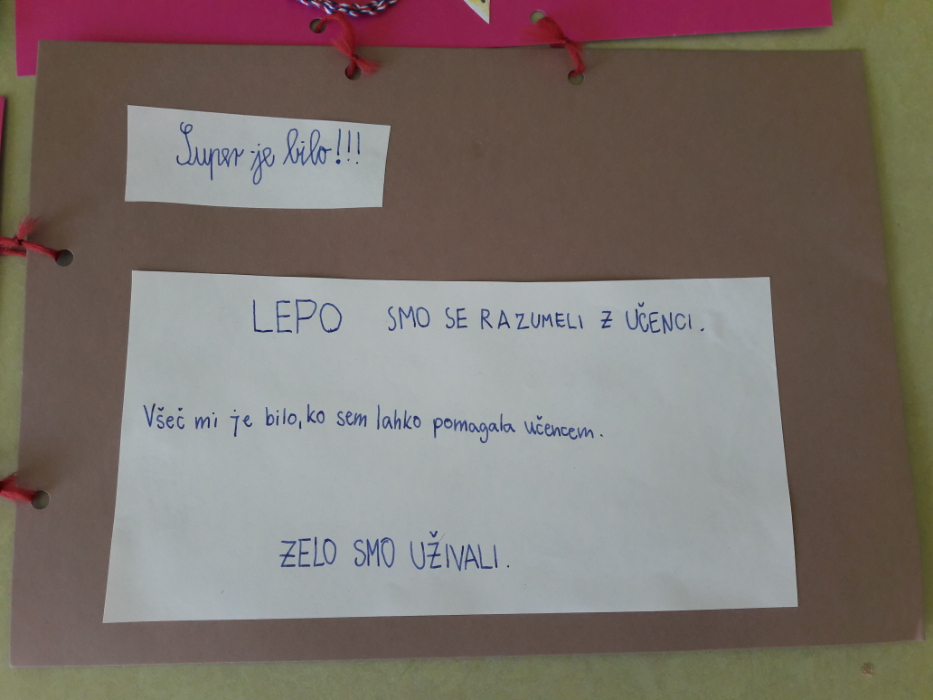 Super je bilo!!!
LEPO SMO SE RAZUMELI Z UČENCI.
Všeč mi je bilo, ko sem lahko pomagala učencem.
ZELO SMO UŽIVALI.